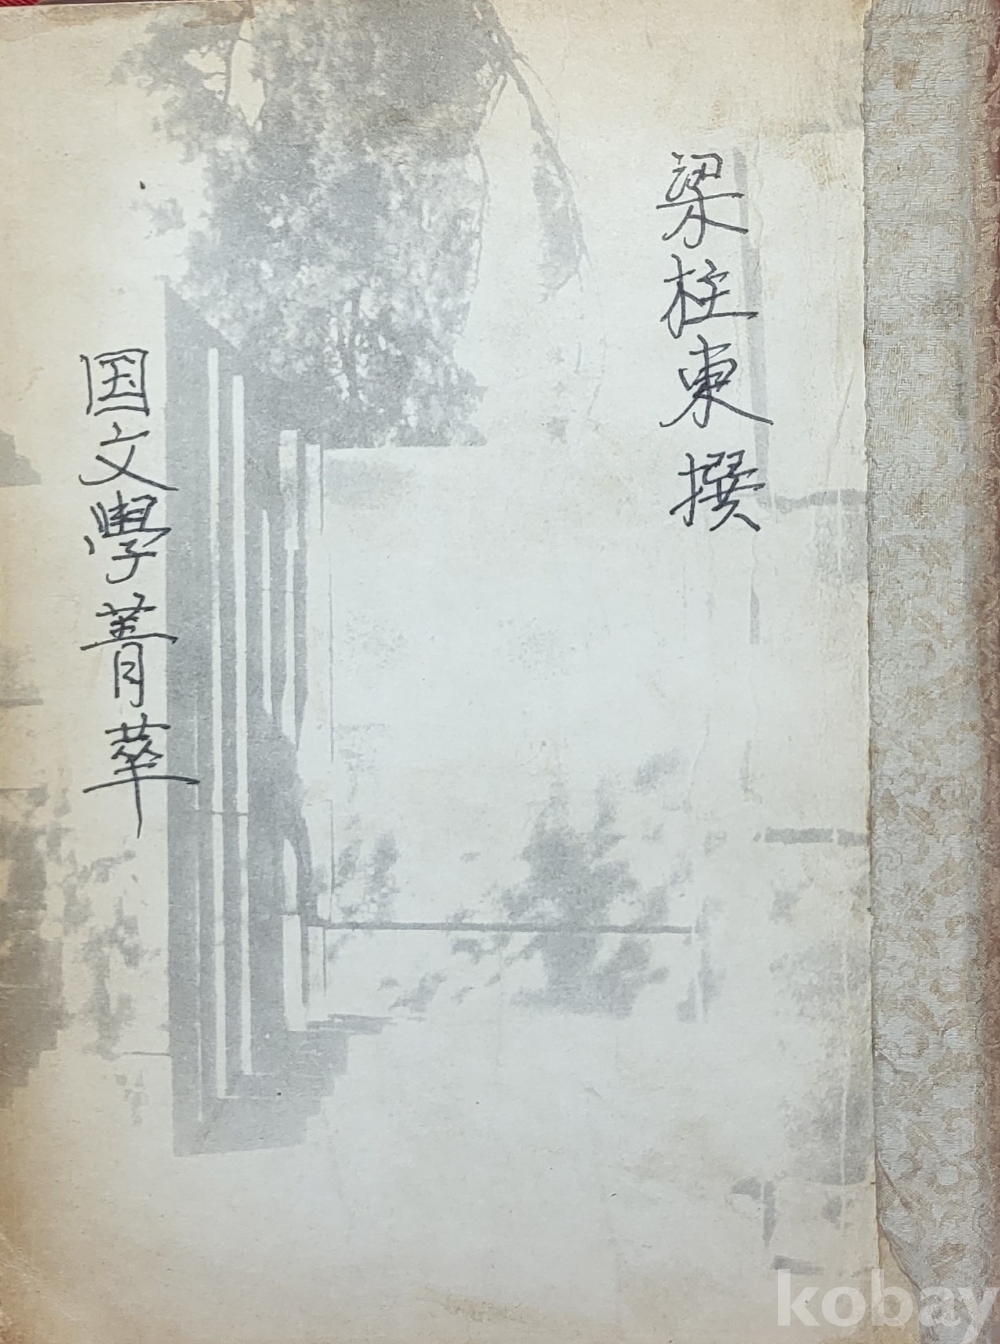 梁柱東 撰
国文學菁萃
kobay